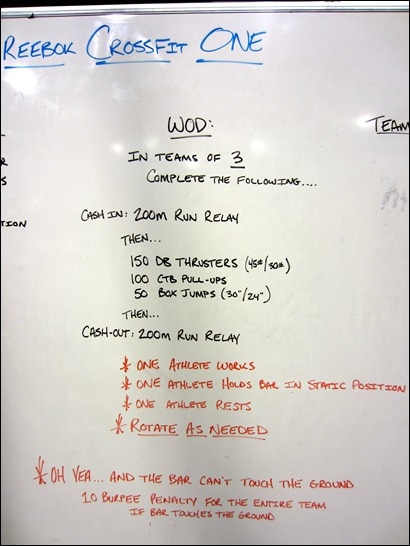 REEBOK CROSSFIT ONE
WOD:
TEAM
IN TEAMS OF 3
COMPLETE THE FOLLOWING....
TION
CASH IN: 200M RUN RELAY
THEN...
150 DB THRUSTERS (45#/30#)
100 CTB PULL-UPS
50 BOX JUMPS (30"/24")
THEN...
CASH-OUT: 200M RUN RELAY
* ONE ATHLETE WORKS
* ONE ATHLETE HOLDS BAR IN STATIC POSITION
* ONE ATHLETE RESTS
* ROTATE AS NEEDED
* OH YEA... AND THE BAR CAN'T TOUCH THE GROUND
10 BURPEE PENALTY FOR THE ENTIRE TEAM
IF BAR TOUCHES THE GROUND